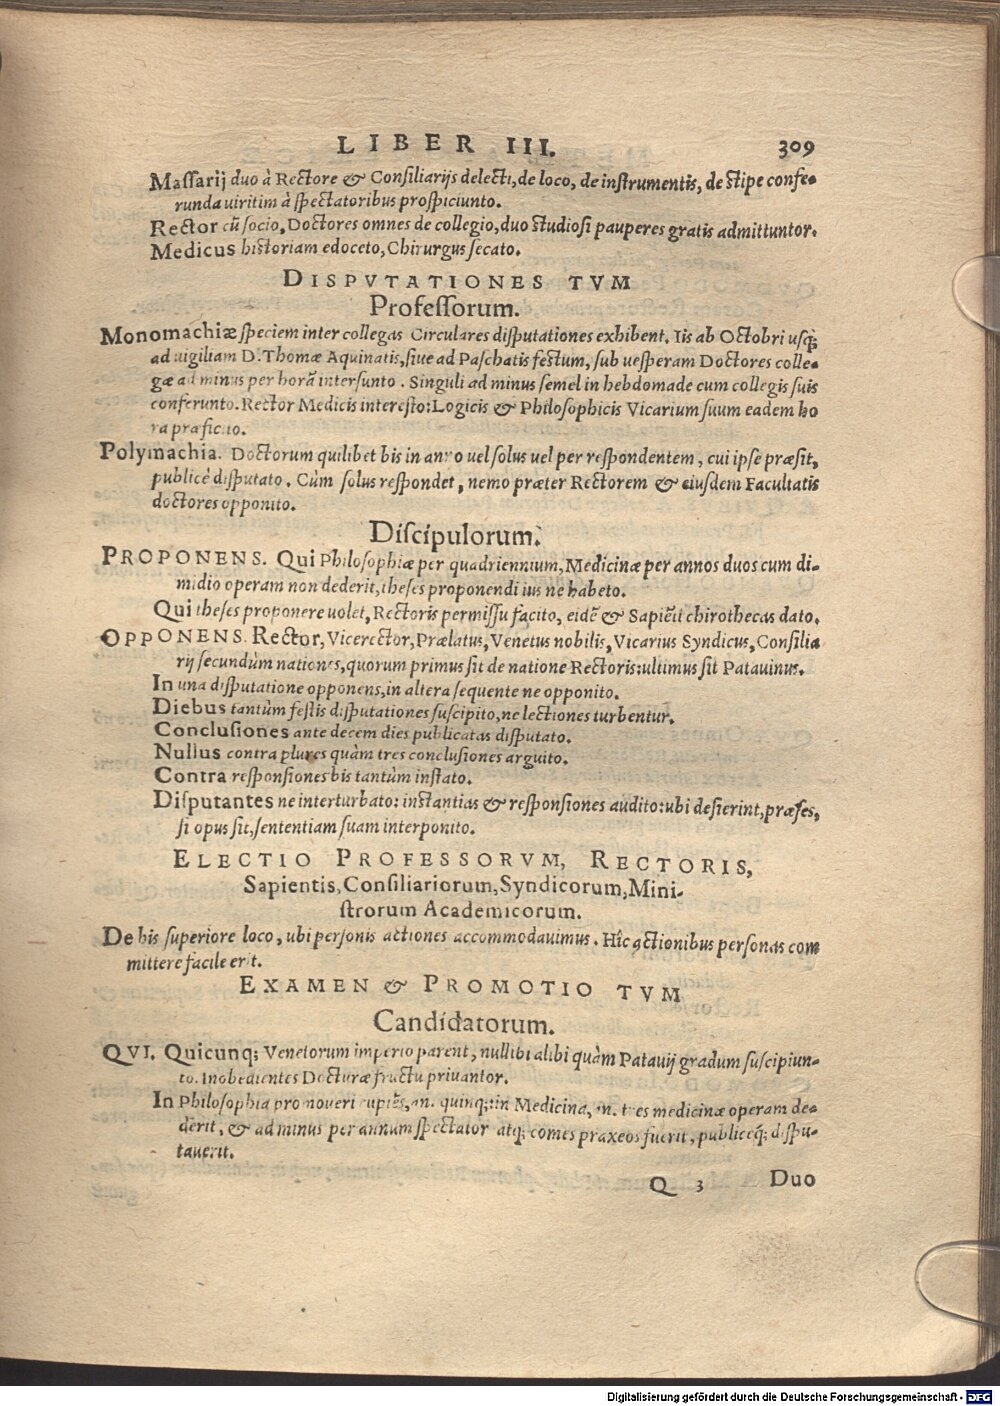 LIBER III. 309
Massarij duo à Rectore & Consiliarijs delecti, de loco, de instrumentis, de stipe confe-
runda uiritim à spectatoribus prospiciunto.
Rector cũ socio, Doctores omnes de collegio, duo studiosi pauperes gratis admittuntor.
Medicus historiam edoceto, Chirurgus secato.
DISPVTATIONES TVM
Professorum.
Monomachiæ speciem inter collegas Circulares disputationes exhibent. Iis ab Octobri usq;
ad uigiliam D. Thomæ Aquinatis, siue ad Paschatis festum, sub uesperam Doctores colle-
gæ ad minus per horã intersunto. Singuli ad minus semel in hebdomade cum collegis suis
conferunto. Rector Medicis interesto: Logicis & Philosophicis Vicarium suum eadem ho
ra præficito.
Polymachia. Doctorum quilibet bis in anno uel solus uel per respondentem, cui ipse præsit,
publicè disputato. Cùm solus respondet, nemo præter Rectorem & eiusdem Facultatis
doctores opponito.
Discipulorum.
PROPONENS. Qui Philosophiæ per quadriennium, Medicinæ per annos duos cum di-
midio operam non dederit, theses proponendi ius ne habeto.
Qui theses proponere uolet, Rectoris permissu facito, eidẽ & Sapiẽti chirothecas dato.
OPPONENS. Rector, Vicerector, Prælatus, Venetus nobilis, Vicarius Syndicus, Consilia
rij secundùm nationes, quorum primus sit de natione Rectoris: ultimus sit Patauinus.
In una disputatione opponens, in altera sequente ne opponito.
Diebus tantùm festis disputationes suscipito, ne lectiones turbentur.
Conclusiones ante decem dies publicatas disputato.
Nullus contra plures quàm tres conclusiones arguito.
Contra responsiones bis tantùm instato.
Disputantes ne interturbato: instantias & responsiones audito: ubi desierint, præses,
si opus sit, sententiam suam interponito.
ELECTIO PROFESSORVM, RECTORIS,
Sapientis, Consiliariorum, Syndicorum, Mini-
strorum Academicorum.
De his superiore loco, ubi personis actiones accommodauimus. Hîc actionibus personas com
mittere facile erit.
EXAMEN & PROMOTIO TVM
Candidatorum.
QVI. Quicunq; Venetorum imperio parent, nullibi alibi quàm Patauij gradum suscipiun-
to. Inobedientes Docturæ fructu priuantor.
In Philosophia promoueri cupiẽs, an. quinq;: in Medicina, an. tres medicinæ operam de-
derit, & ad minus per annum spectator atq; comes praxeos fuerit, publiceq; dispu-
tauerit.
Q 3 Duo
Digitalisierung gefördert durch die Deutsche Forschungsgemeinschaft - DFG